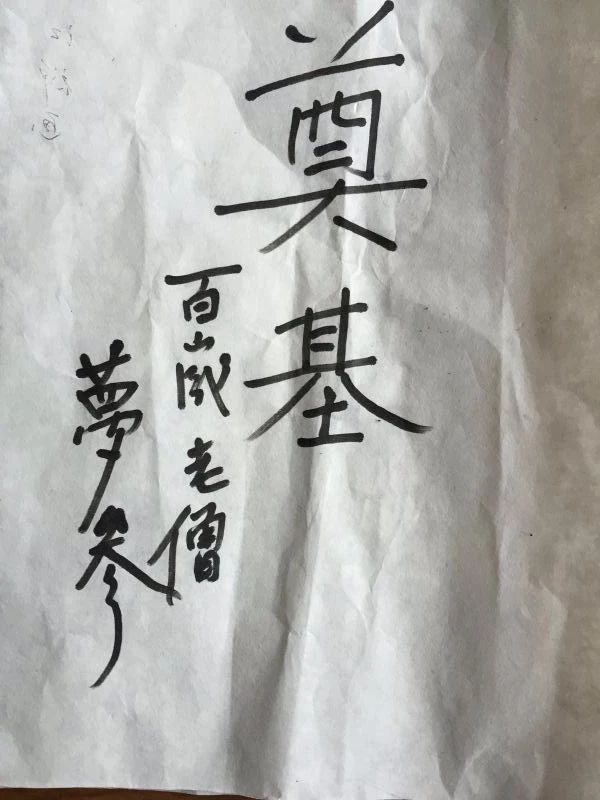 奠基
百歲老僧
夢參